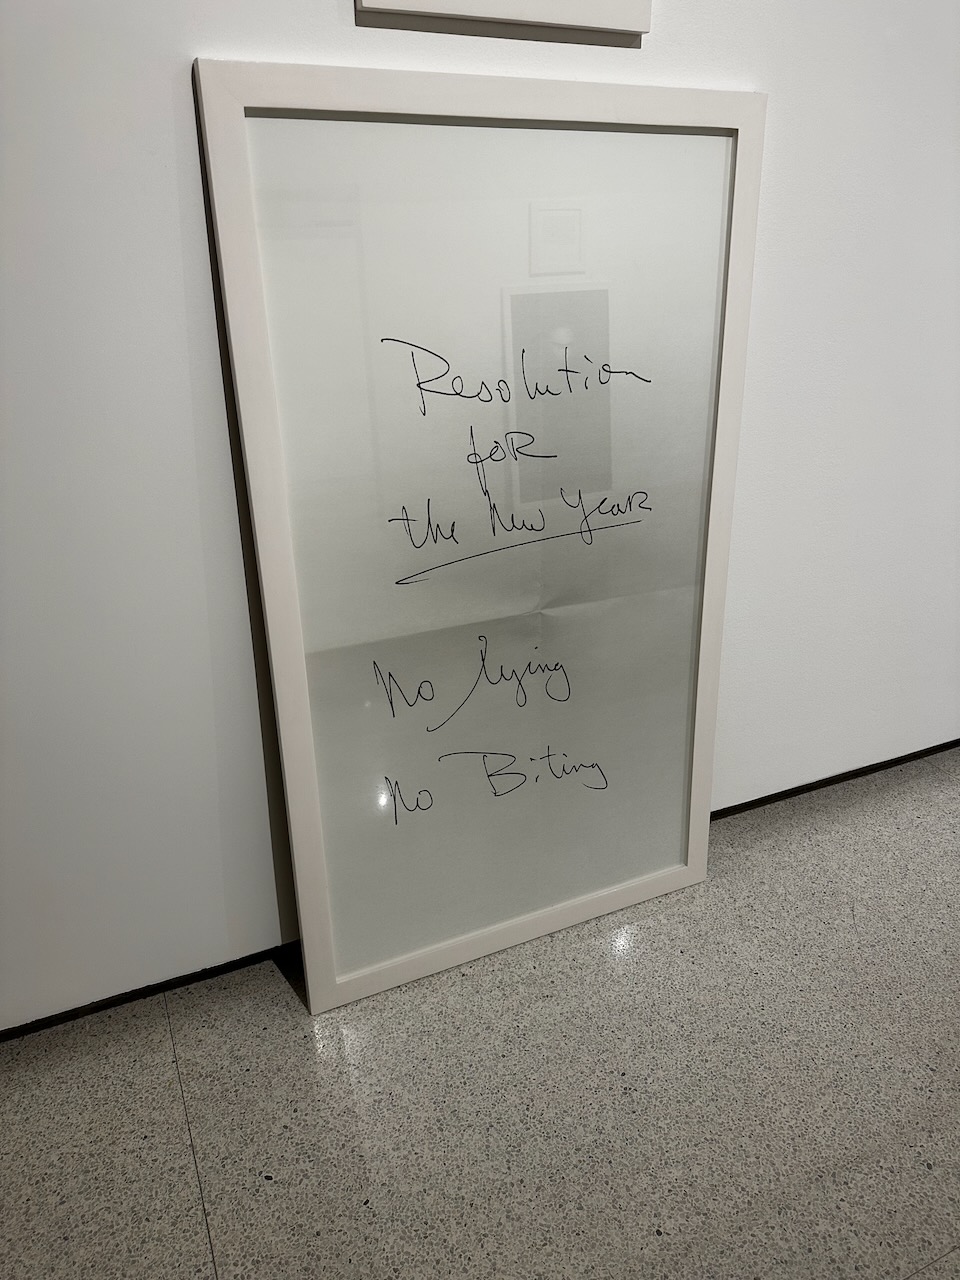 Resolution
foR
the New YeaR
No lying
No Biting